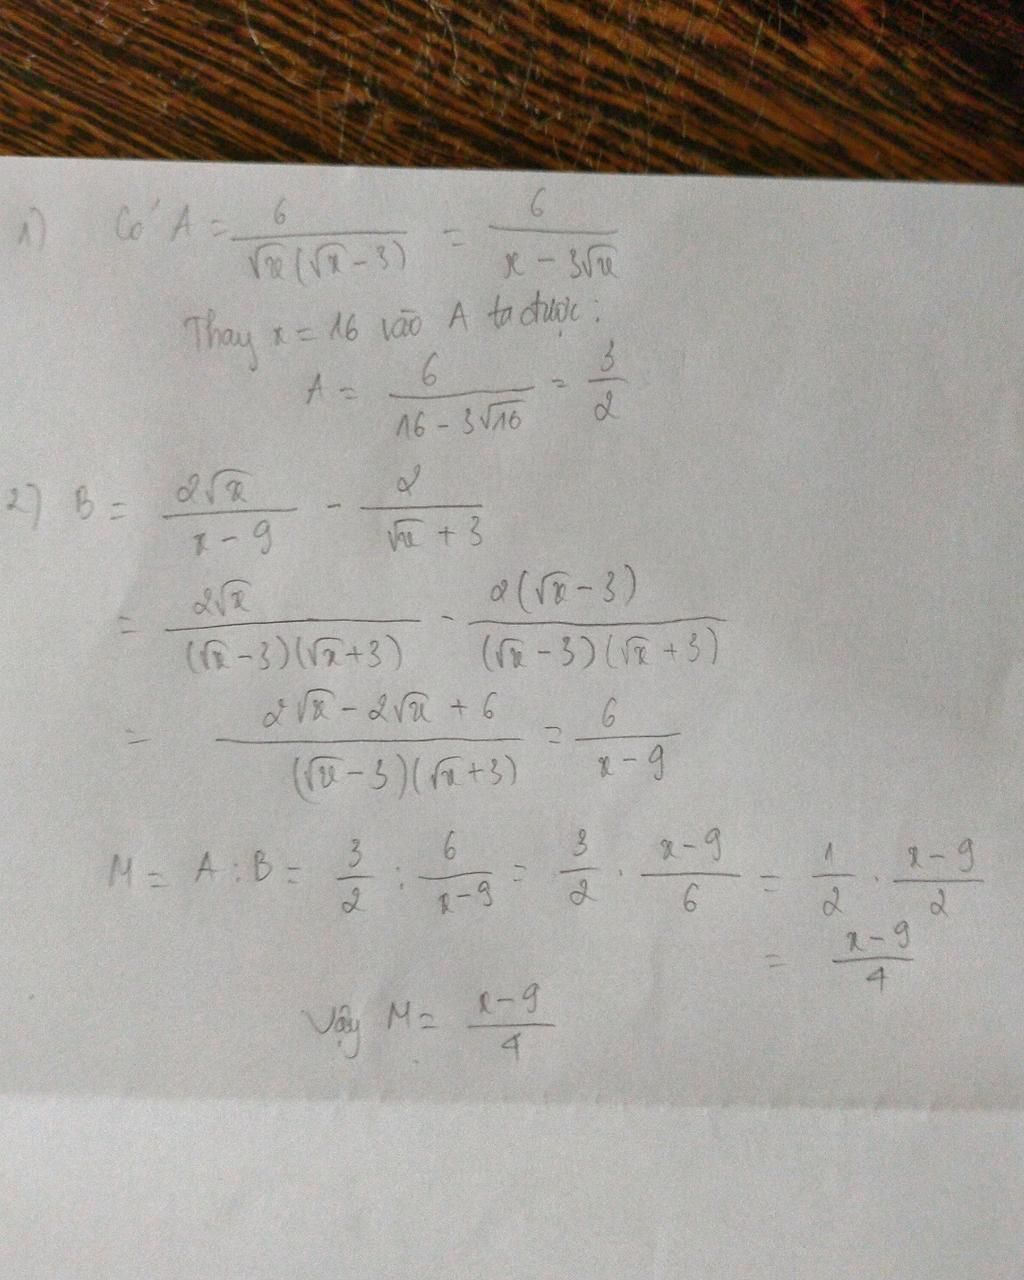 1) Có A = 6/(√x(√x - 3)) = 6/(x - 3√x)
Thay x = 16 vào A ta được:
A = 6/(16 - 3√16) = 3/2
2) B = 2√x/(x - 9) - 2/(√x + 3)
= 2√x/((√x - 3)(√x + 3)) - 2(√x - 3)/((√x - 3)(√x + 3))
= (2√x - 2√x + 6)/((√x - 3)(√x + 3)) = 6/(x - 9)
M = A : B = 3/2 : 6/(x - 9) = 3/2 . (x - 9)/6 = 1/2 . (x - 9)/2
= (x - 9)/4
Vậy M = (x - 9)/4